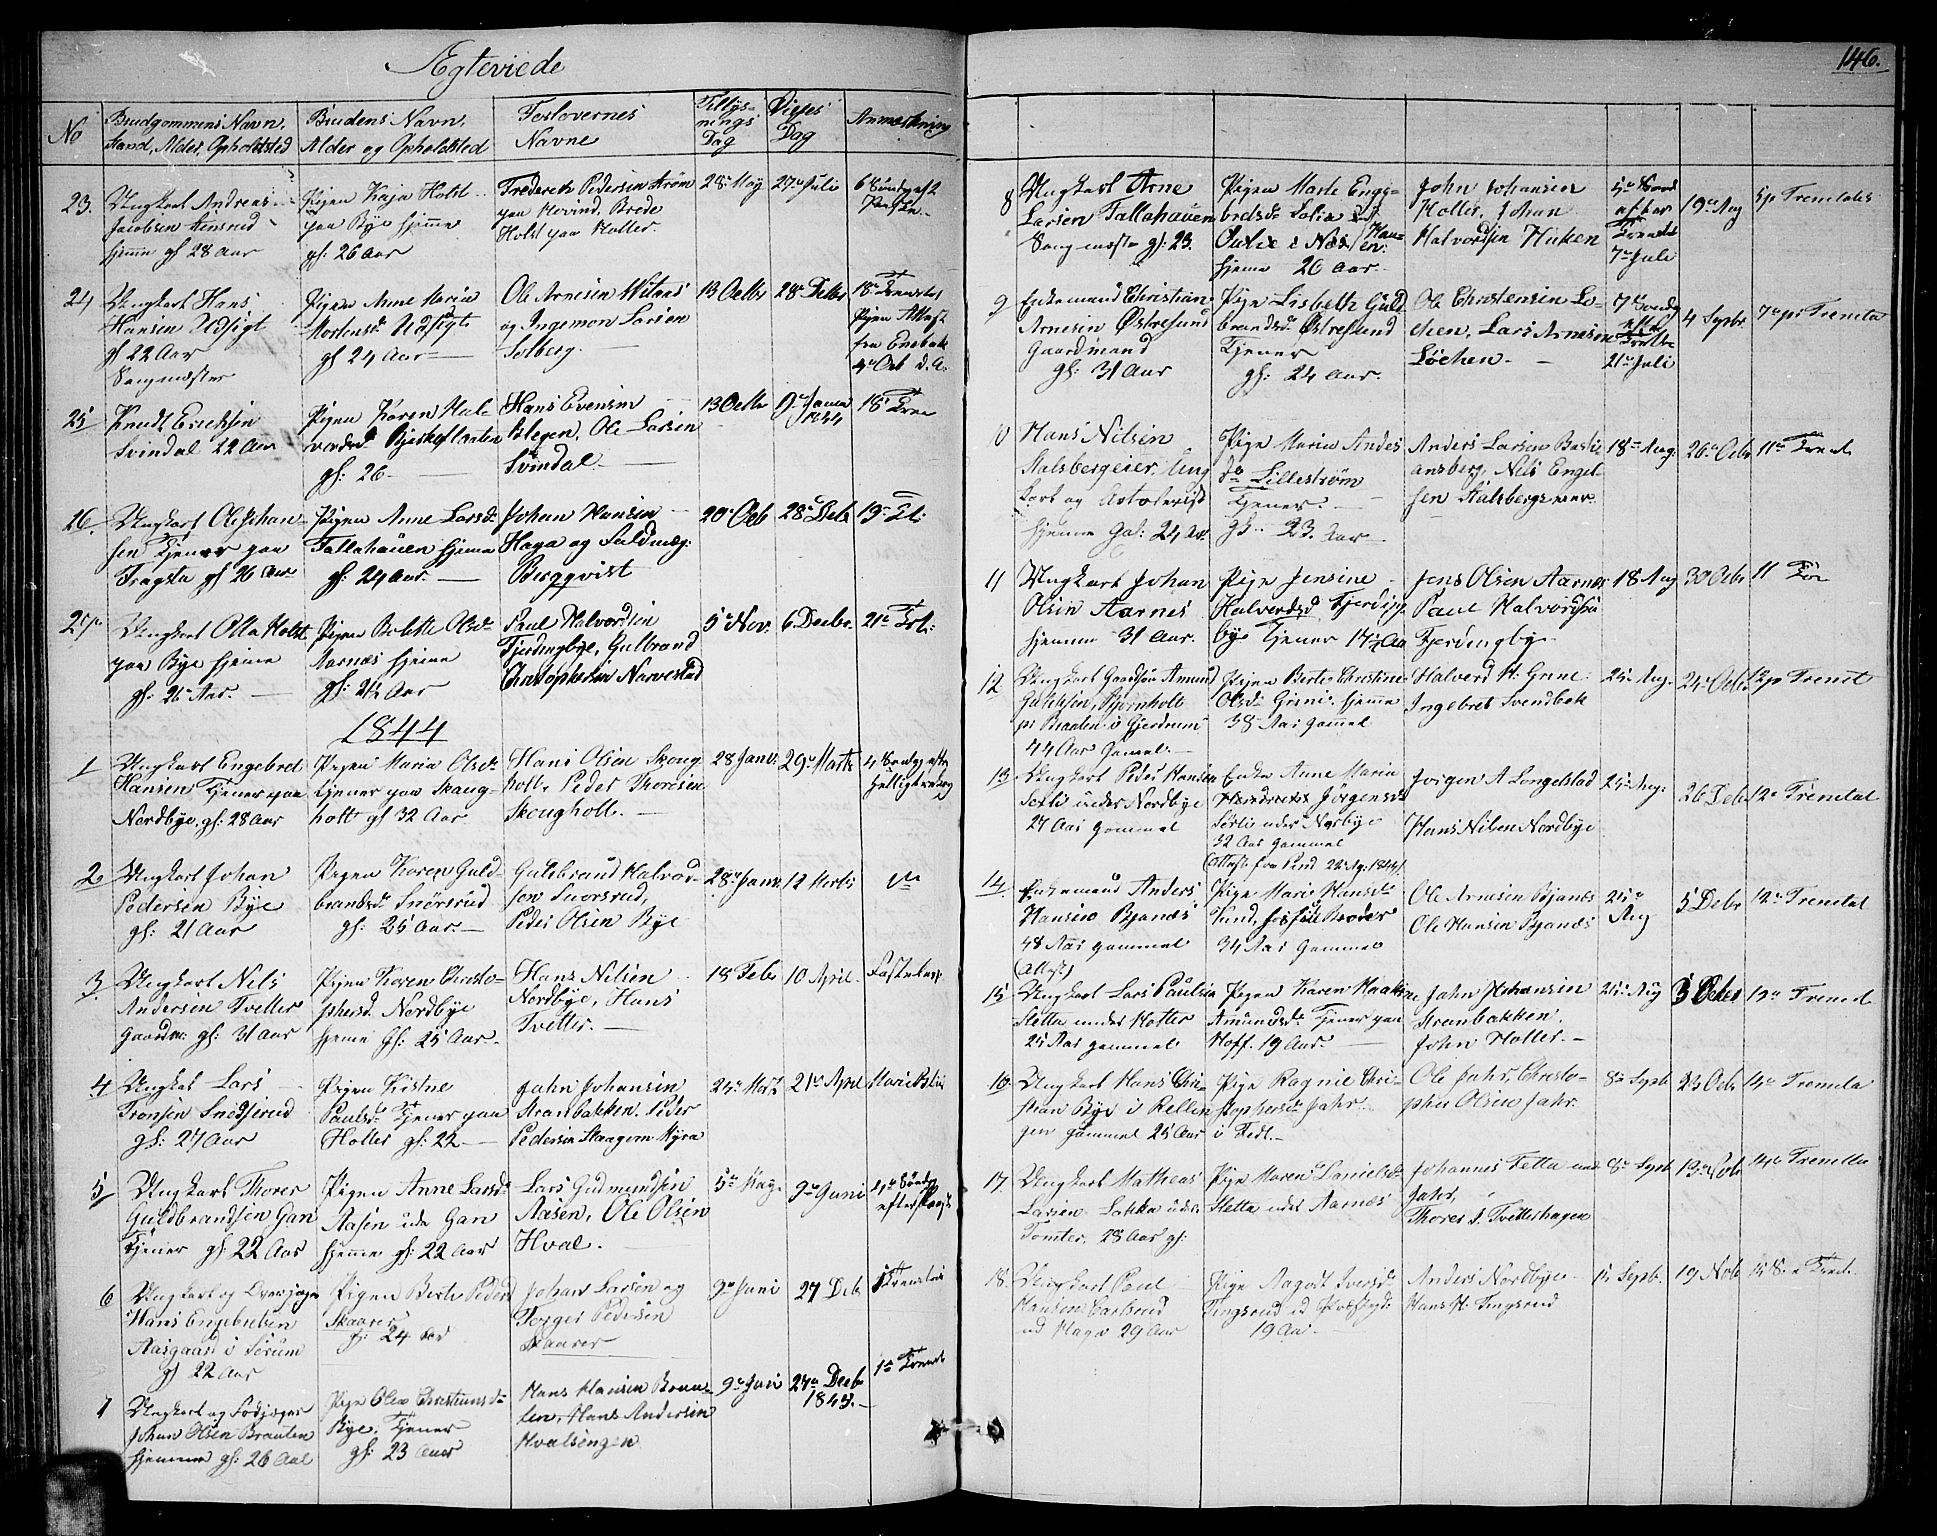 146.
Ægteviede
No
Brudgommens Navn,
Stand, Alder, Opholdsted
Brudens Navn
Alder og Opholdsted
Forlovernes
Navne
Tillys-
nings
Dag
Vielses
Dag
Anmærkning
23.
Ungkarl Andreas
Jacobsen
hjemme gl 28 Aar
Pigen Kaja Holst
paa Bye hjemme
gl: 26 Aar
Frederik Pedersen Strøm
paa Hovind, Brede
Holst paa Holter
28 May
27 Juli
6 Søndag eft
Paaske
24
Ungkarl Hans
Hansen Udsigt
gl 22 Aar
Pigen Anne Maria
Mortensd Udsigt
gl 24 Aar
Ole Arnesen
og Ingemon Larsen
Solberg
13 Octbr
28 Decbr
18
Pigen Attest
fra Enebak
4 Oct d. A.
25
Knudt Ericksen
Svindal 22 Aar
Pigen Karen Hal-
vordsd
gl: 26
Hans Evensen
Blegen, Ole Larsen
Svindal
13 Octbr
9 Janu
1844
18 Tren
26.
Ungkarl Ole Johan-
sen Tjener paa
Tragsta gl 26 Aar
Pigen Anne Larsd
Tallahauen hjemme
gl: 24 Aar.
Johan Hansen
Haga og Fuldmæg:
Bergqvist
20 Octb
28 Decb
19 Tr:
27
Ungkarl Olla Holst
paa Bye hjeme
gl: 26 Aar.
Pigen Bolette Olsd
Aarnæs hjeme
gl: 24 Aar
Paul Halvordsen
Fjerdingbye, Gulbrand
Christophersen Narvestad
5 Nov.
6 Decbr.
21 Tr:
1844
1
Ungkarl Engebret
Hansen Tjener paa
Nordbye, gl: 28 Aar
Pigen Maria Olsd
tjener paa Skoug-
holt gl 32 Aar
Hans Olsen Skoug
holt, Peder Thoresen
Skougholt.
28 Janr.
29 Marts
4 Søndg eftr
Helligtrekong
2
Ungkarl Johan
Pedersen Bye
gl: 21 Aar
Pigen Karen Guld-
brandsd Snørsrud
gl: 25 Aar
Guldbrand Halvor-
sen Snorsrud,
Peder Olsen Bye
28 Janr.
12 Marts
3.
Ungkarl Nils
Andersen Tvetter
Gaardm: gl: 31 Aar
Pigen Karen Christo-
phersd. Nordbye
hjeme gl: 25 Aar.
Hans Nilsen
Nordbye, Hans
Tvetter.
18 Febr
10 April
Fastelavn
4
Ungkarl Lars
Tronsen
gl: 27 Aar
Pigen Kistne
Paulsd Tjener paa
Holter gl: 22
John Johansen
Stranbakken, Peder
Pedersen
24 Mart
21 April
5
Ungkarl Thorer
Guldbrandsen Gan
Tjener gl: 22 Aar
Pigen Anne Larsd
Aasen ude Gan
hjemme gl: 22 Aar
Lars Gudmundsen
Aasen, Ole Olsen
Hval.
5 May
9 Juni
4 Søndg
efter Paask
6
Ungkarl og
Hans Engebretsen
Aasgaard i Sørum
gl 22 Aar
Pigen Berte Pedersd
Skaarer
gl: 24 Aar
Johan Larsen og
Torger Pedersen
Skaarer
9 Juni
27 Deb
1 Trenetis
7
Ungkarl og
Johan Olsen Braaten
hjemme gl: 26 Aar
Pige Olea Christiansd
Bye, Tjener
gl: 23 Aar
Hans Hansen Braa-
ten, Hans Andersen
Hvalsengen
9 Juni
27 Decb
1843.
1 Trenet
8
Ungkarl Arne
Larsen Tallahauen
Sougmester gl: 23.
Pigen Marte Enge-
bretsd
hjeme 26 Aar.
John Johansen
Holter, Johan
Halvordsen Huken
5 Sønd
efter
Trenet
7 Juli
19 Aug
5 p Tremtatis
9
Enkemand Christian
Arnesen Østresund
Gaardmand
gl: 31 Aar
Pige Lisbeth Guld
brandsd Østresund
Tjener
gl: 24 Aar.
Ole Christensen Lo-
chen, Lars Arnesen
Løchen
7 Søndg
efter
21 Juli
4 Sepbr.
7 p: Tremta
10
Hans Nilsen
Aalsbergeier, Ung
karl og
hjemme gl: 24 Aar
Pige Maria Anders
d Lillestrøm
Tjener.
gl: 23. Aar
Anders Larsen Basti-
ansberg, Nils Engel-
sen Aalsbergseier
18 Aug:
26 Ocbr
11 Trenet
11
Ungkarl Johan
Olsen Aarnes
hjemme 31 Aar.
Pige Jensine
Halvordsd Fjerding
bye Tjener 17½ Aa
Jens Olsen Aarnæs
Paul Halvordsen
Fjerdingbye
18 Aug
30 Octbr
11 Tre
12
Ungkarl Gaardm Amund
Guldbrsen Bjørnholt
pr Braaten i Gjerdrum
44 Aar gamel.
Pigen Berte Christine
Olsd: Grini, hjemme
38 Aar gammel
Halvord H. Grine
Ingebret Svendbak
25 Aug.
24 Octb
12 p Trenet
13
Ungkarl Peder Hansen
Sørli under Nordbye
27 Aar gammel
Enke Anne Maria
Jörgensd
Sørlie under Norbye
32 Aar gammel
Jørgen A Longelstad
Hans Nilsen Nordbye
25 Aug:
26 Deb
12 Tremtat
14.
Enkemand Anders
Hansen Bjanæs
48 Aar gammel
(Attest)
(Attest fra Fund 22 Ag. 1844)
Pige Marie Hansd
34 Aar gammel
Ole Arnesen Bjanæs
Ole Hansen Bjanæs
25
Aug
5 Debr
12 Tremtat
15
Ungkarl Lars Paulsen
Sletta under Holter
25 Aar gammel
Pigen Karen Maakine
Amundsd. Tjener paa
Hoff. 19 Aar.
John Johansen
Stranbakken.
John Holter.
25 Aug
3 Decbr
12 Tremt
16
Ungkarl Hans Chri-
stian Bye i Rellin
gen gammel 25 Aar
Pige Ragnie Chri-
stophersd Jahr.
i Fedt.
Ole Jahr, Christo-
pher Olsen Jahr.
8 Sepb
23 Ocb
14 Tremta
17.
Ungkarl Mathias
Larsen Lokka under
Tomter, 28 Aar gl:
Pige Maren Danielsd
Sletta under Aarnæs
Johannes Tetta und
Jahr,
Thorer J. Tvetterhagen
8 Sepb
14 Tremta
18.
Ungkarl Paul
Hansen
ud Haga 29 Aar
Pige Aagodt Iversd
Tingsrud
19 Aar
Anders Nordbye
Hans H. Tingsrud
15 Sepb.
19 Nob